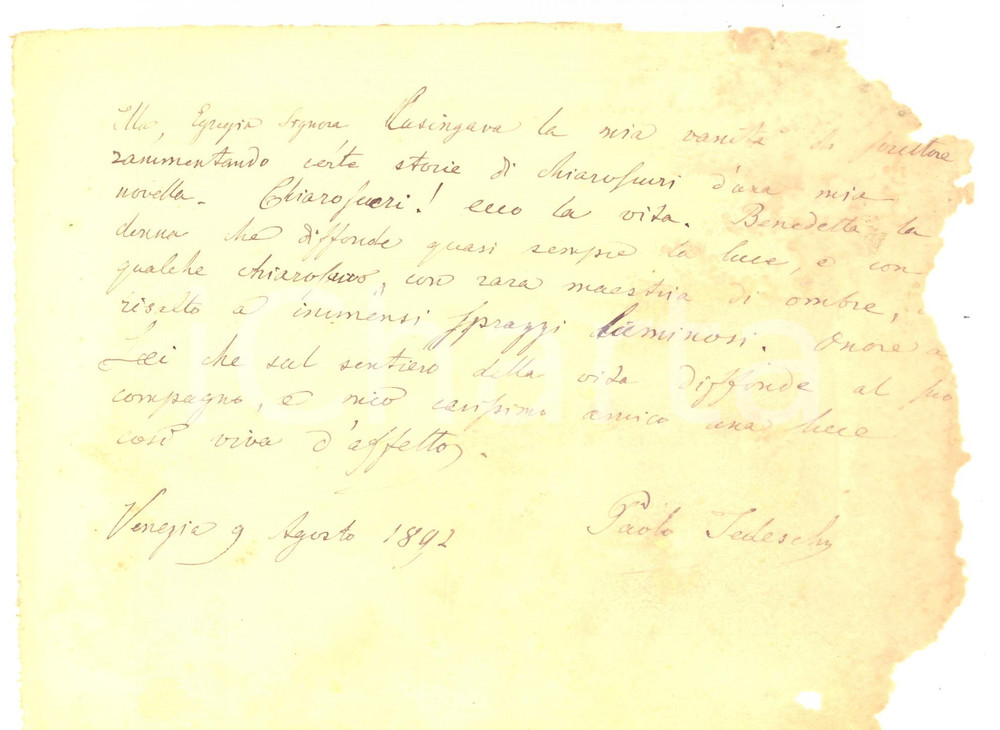 Ella, Egregia Signora lusingava la mia vanità di scrittore
rammentando certe storie di chiaroscuri d'una mia
novella. Chiaroscuri! ecco la vita. Benedetta la
donna che diffonde quasi sempre la luce, e con
qualche chiaroscuro, con rara maestria di ombre,
risalto a immensi sprazzi luminosi. Onore a
Lei che sul sentiero della vita diffonde al suo
compagno, e mio carissimo amico una luce
così viva d'affetto.
Venezia 9 Agosto 1892 Paolo Tedeschi